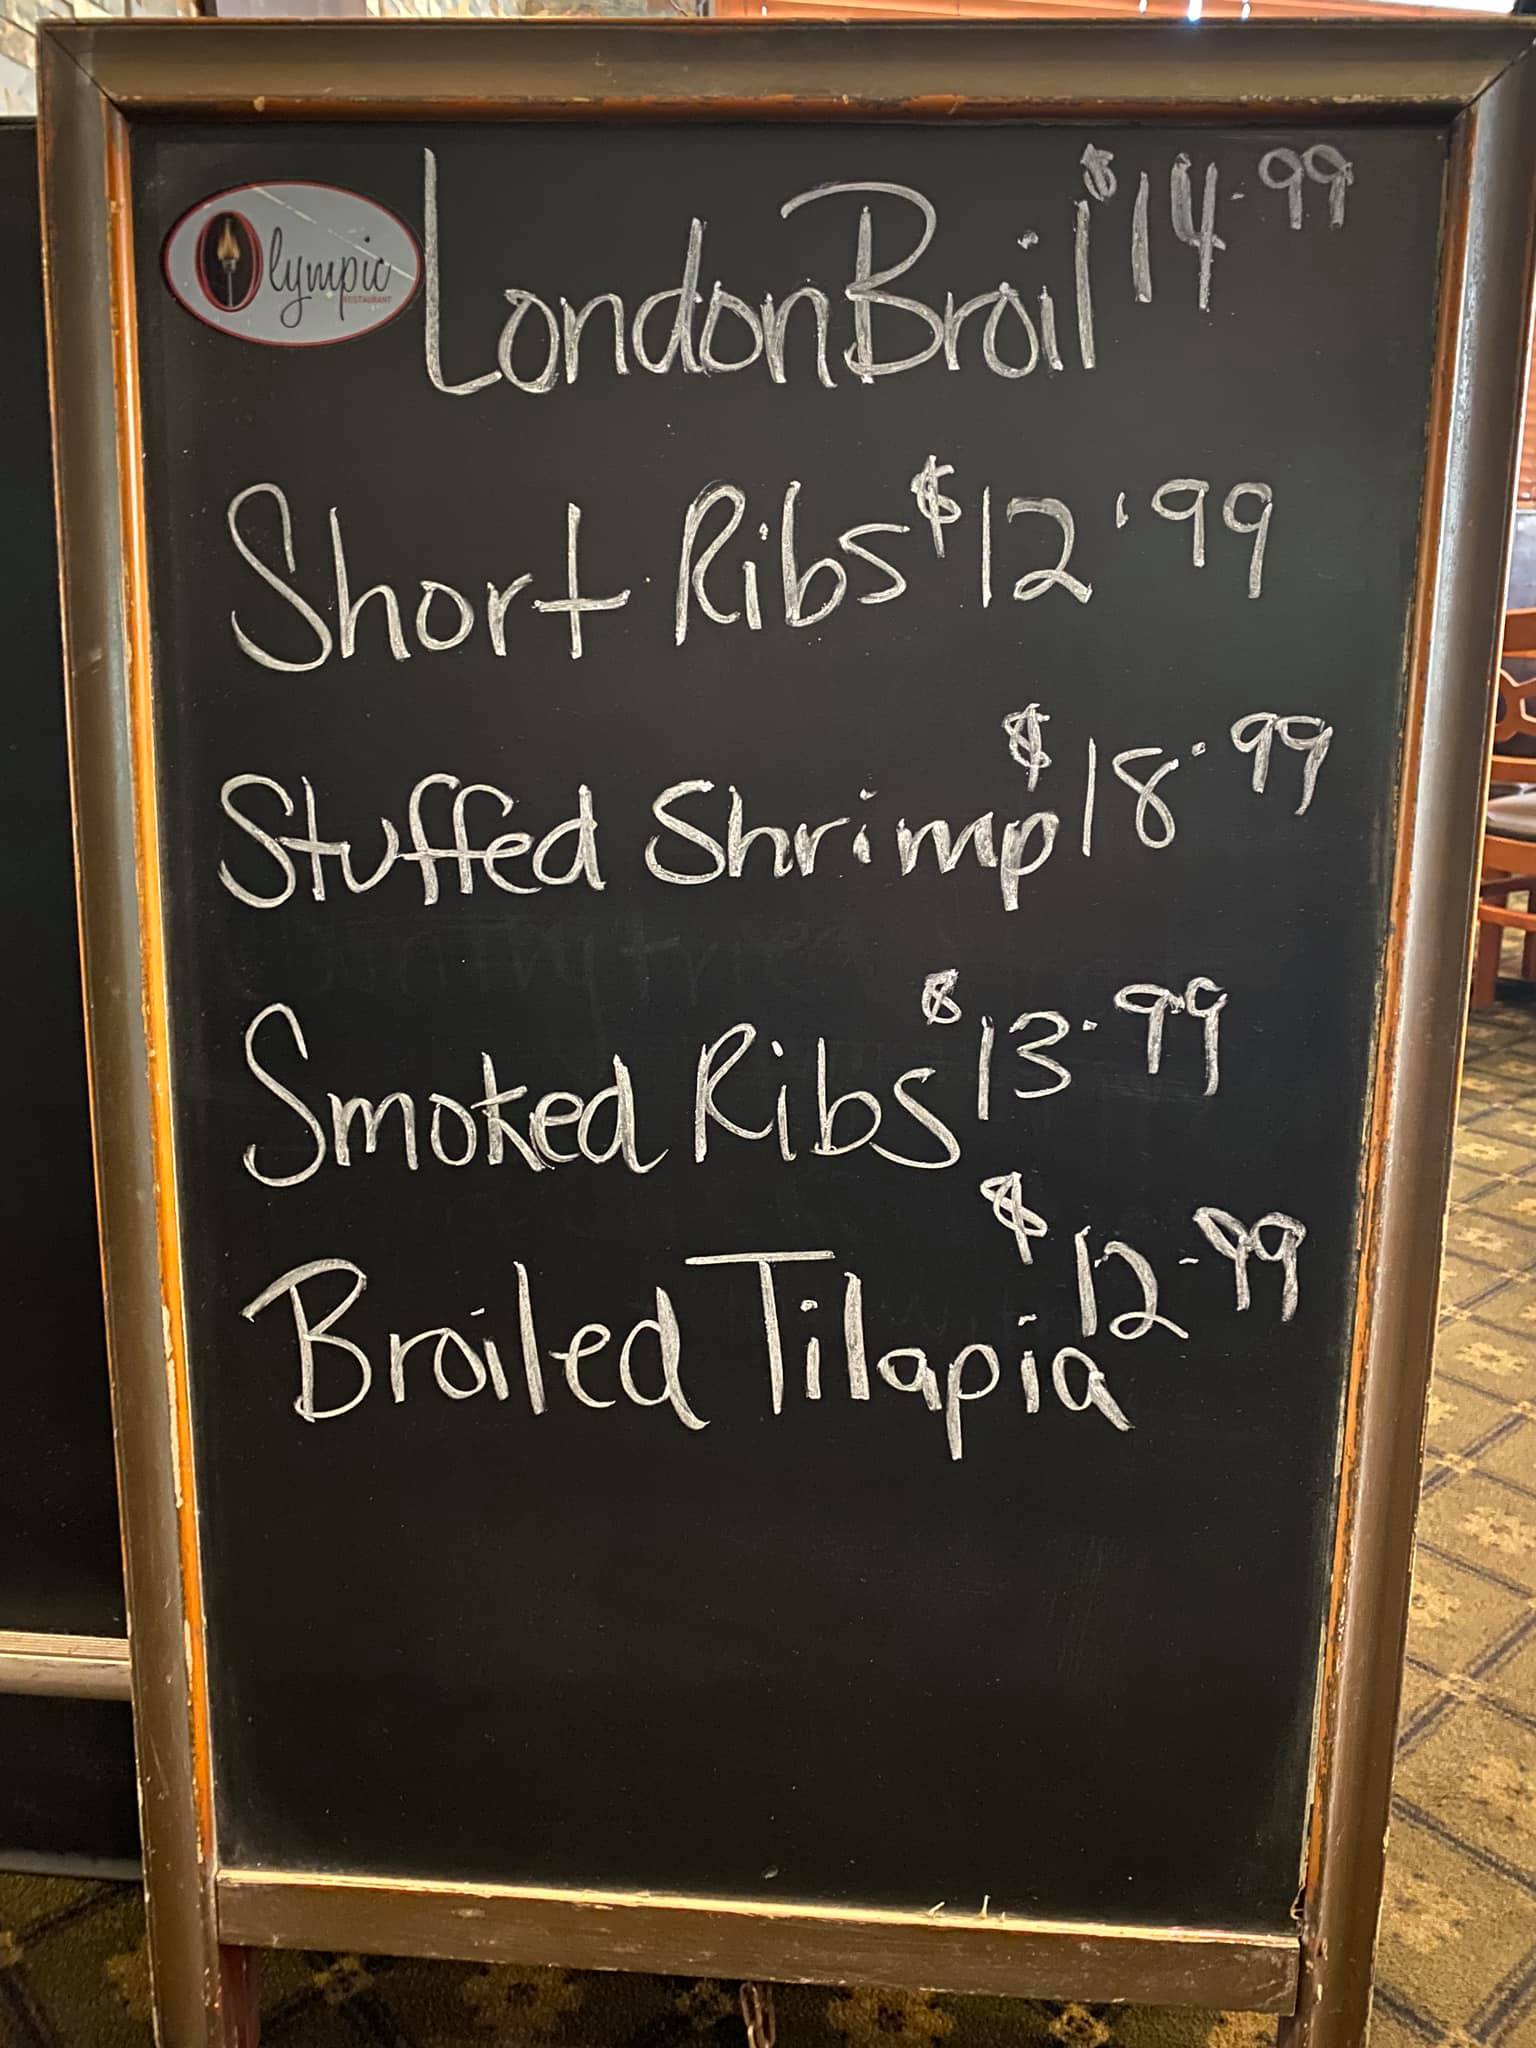 Olympic
RESTAURANT
London Broil $14.99
Short Ribs $12.99
Stuffed Shrimp $18.99
Smoked Ribs $13.99
Broiled Tilapia $12.99